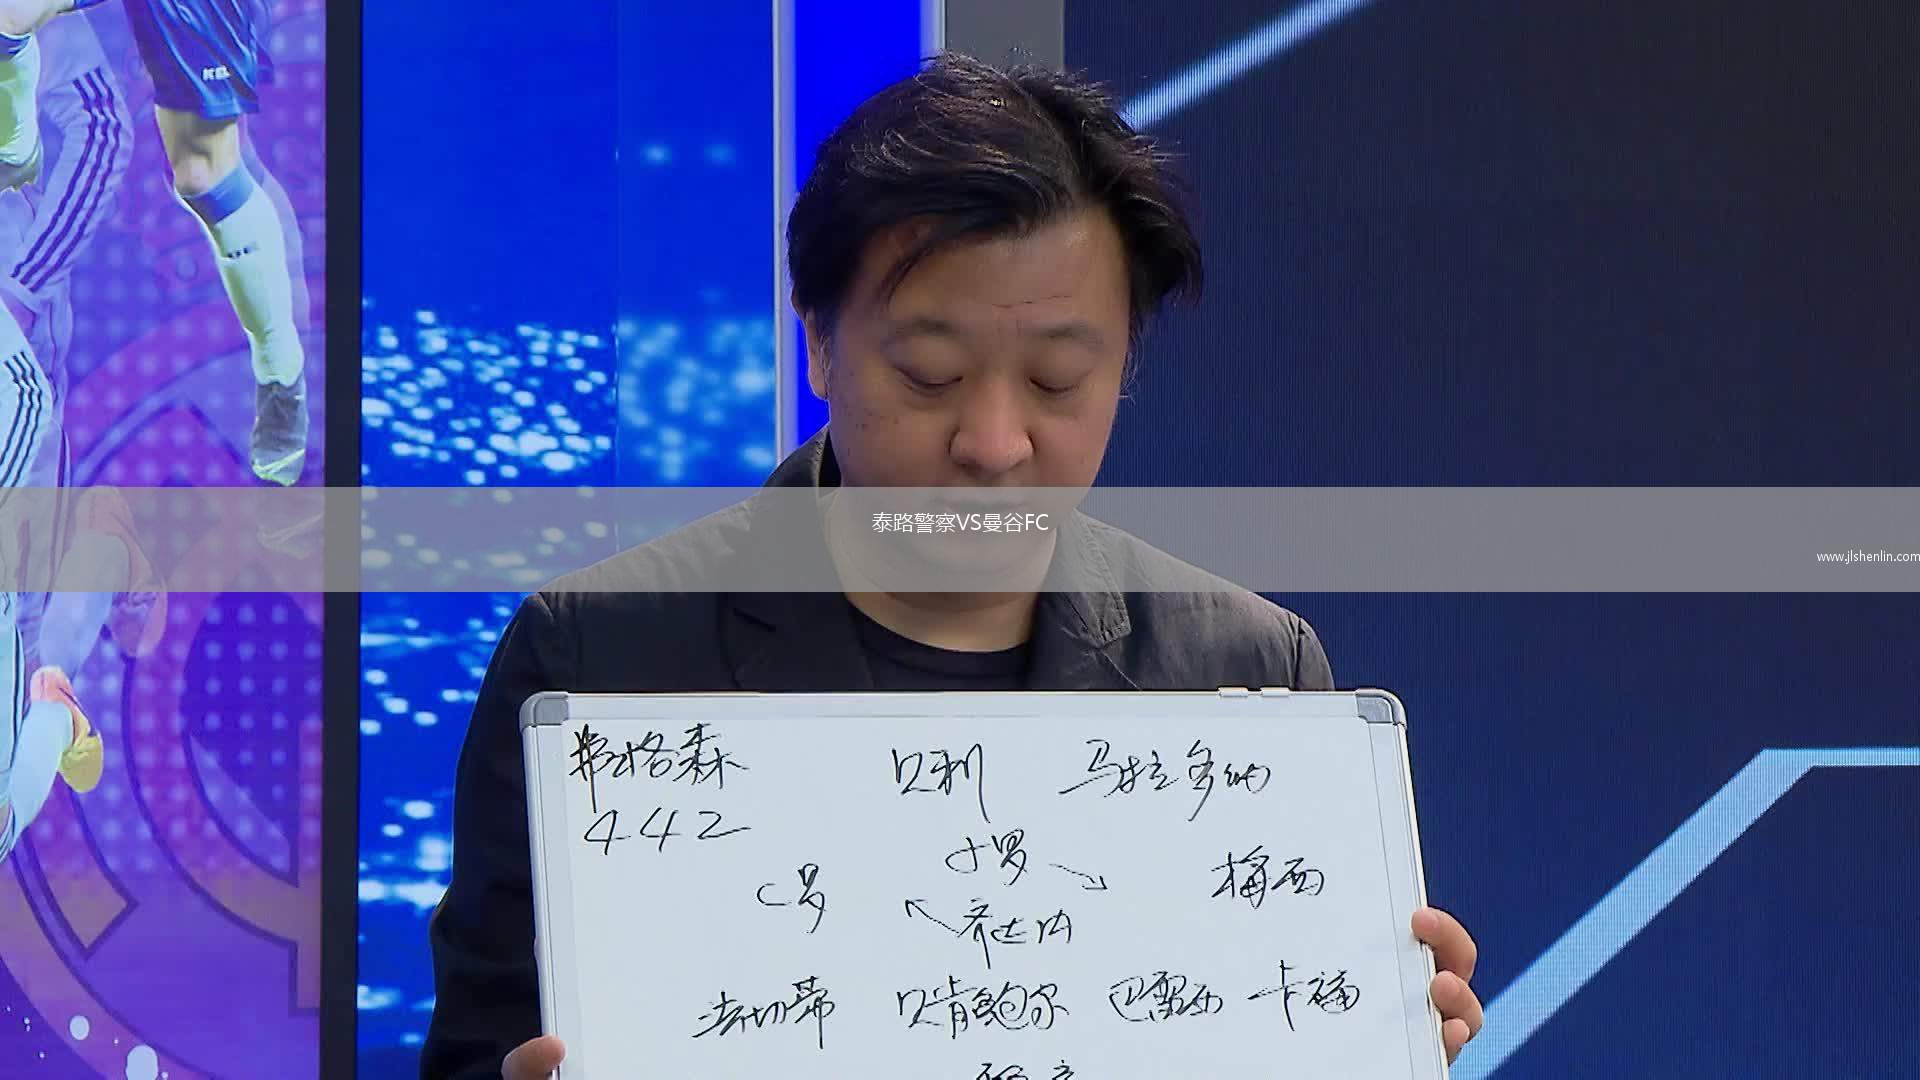 泰路警察VS曼谷FC
www.jlshenlin.com
弗格森 贝利 马拉多纳
442
小罗
C罗 梅西
齐达内
法切蒂 贝肯鲍尔 巴雷西 卡福